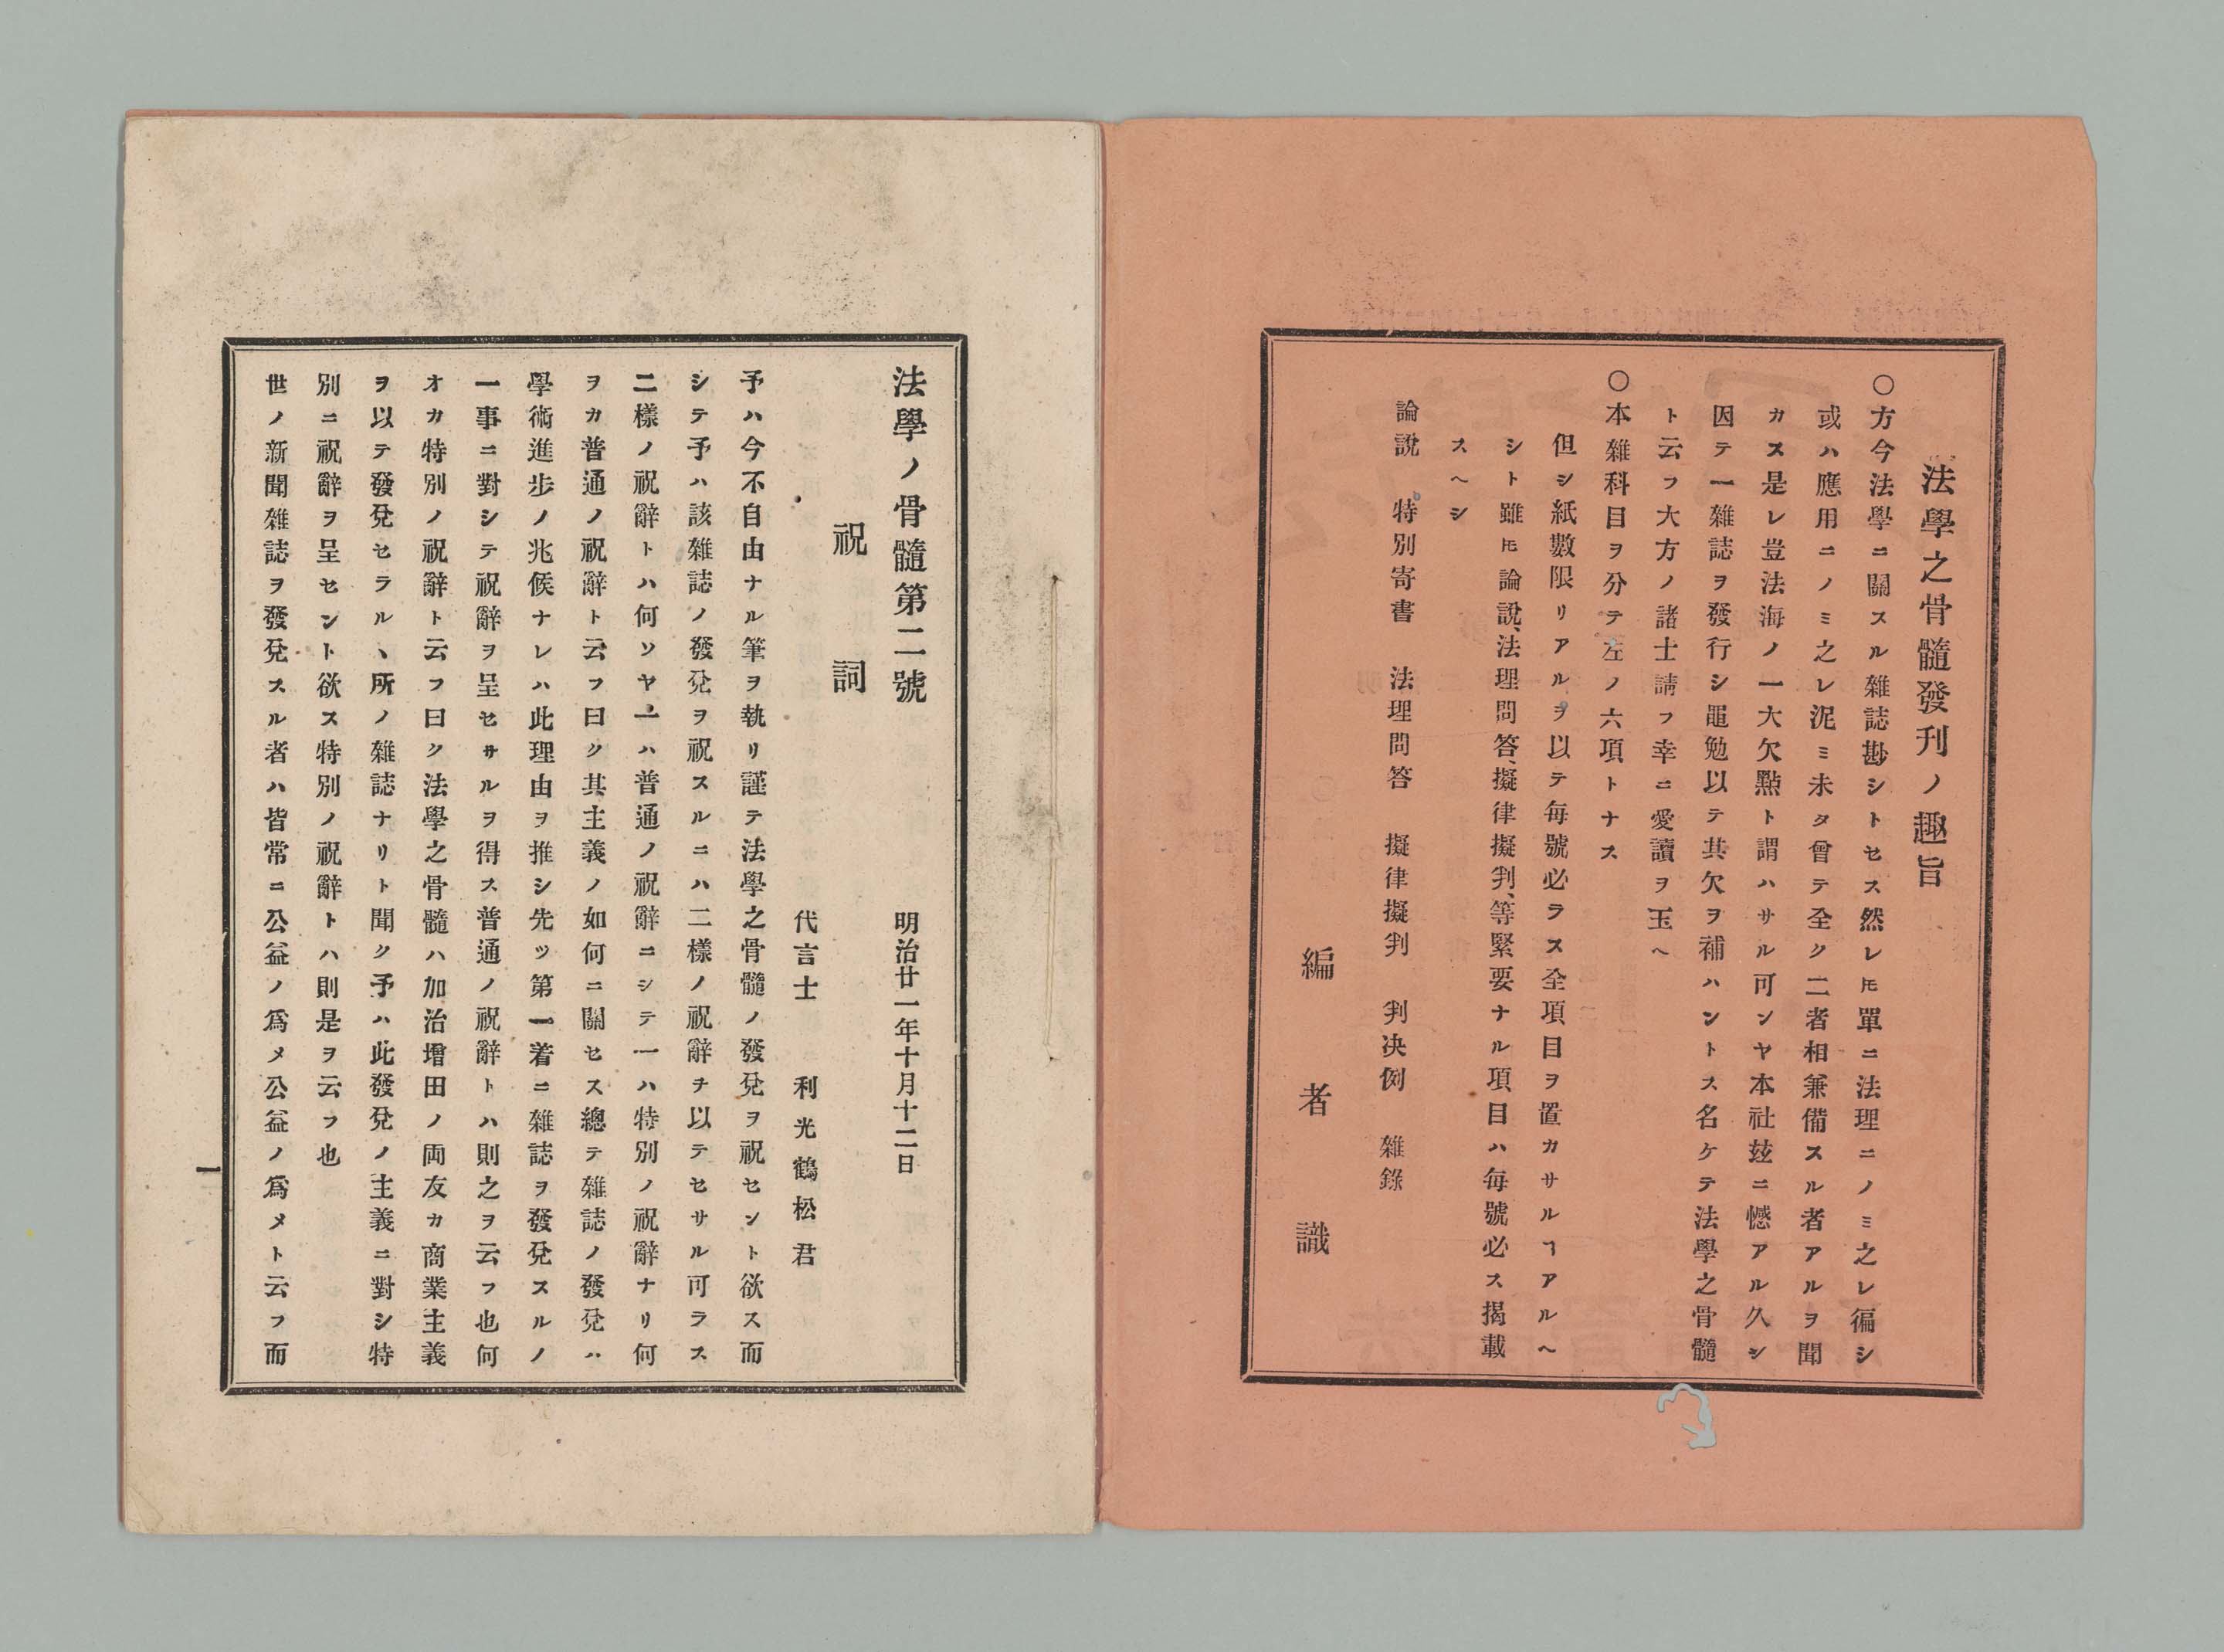 法學之骨髓發刊ノ趣旨
○方今法學ニ關スル雜誌尠シトセス然レ𪜈單ニ法理ニノミ之レ徧シ
或ハ應用ニノミ之レ泥ミ未タ曾テ全ク二者相兼備スル者アルヲ聞
カス是レ豈法海ノ一大欠㸃ト謂ハサル可ンヤ本社玆ニ憾アル久シ
因テ一雜誌ヲ發行シ黽勉以テ其欠ヲ補ハントス名ケテ法學之骨髓
ト云フ大方ノ諸士請フ幸ニ愛讀ヲ玉へ
○本雜科目ヲ分テ左ノ六項トナス
但シ紙數限リアルヲ以テ每號必ラス全項目ヲ置カサルヿアルへ
シト雖𪜈論說、法理問答、擬律擬判、等緊要ナル項目ハ每號必ス揭載
スヘシ
論說　特別寄書　法理問答　擬律擬判　判决例　雜錄
編者識
法學ノ骨髓第二號　明治廿一年十月十二日
祝詞
代言士　利光鶴松君
予ハ今不自由ナル筆ヲ執リ謹テ法學之骨髓ノ發兌ヲ祝セント欲ス而
シテ予ハ該雜誌ノ發兌ヲ祝スルニハ二樣ノ祝辭チ以テセサル可ラス
二樣ノ祝辭トハ何ソヤ一ハ普通ノ祝辭ニシテ一ハ特別ノ祝辭ナリ何
ヲカ普通ノ祝辭ト云フ曰ク其主義ノ如何ニ關セス總テ雜誌ノ發兌ハ
學術進步ノ兆候ナレハ此理由ヲ推シ先ツ第一着ニ雜誌ヲ發兌スルノ
一事ニ對シテ祝辭ヲ呈セサルヲ得ス普通ノ祝辭トハ則之ヲ云フ也何
オカ特別ノ祝辭ト云フ曰ク法學之骨髓ハ加治增田ノ両友カ商業主義
ヲ以テ發兌セラルヽ所ノ雜誌ナリト聞ク予ハ此發兌ノ主義ニ對シ特
別ニ祝辭ヲ呈セント欲ス特別ノ祝辭トハ則是ヲ云フ也
世ノ新聞雜誌ヲ發兌スル者ハ皆常ニ公益ノ爲メ公益ノ爲メト云フ而
一